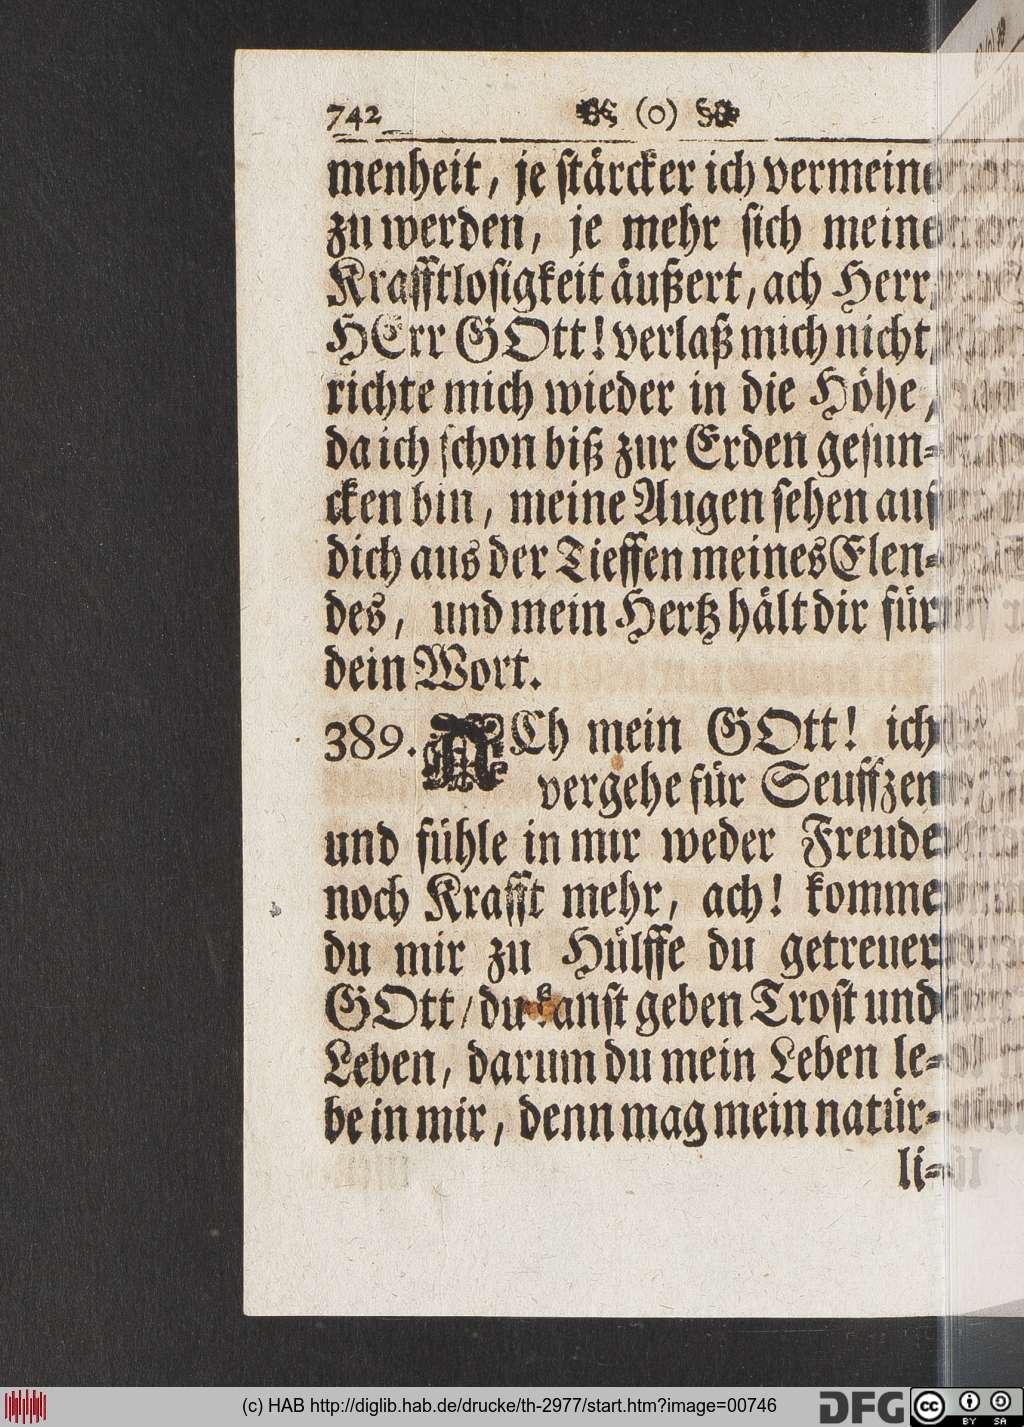 742 (o)
menheit, je stärcker ich vermeine
zu werden, je mehr sich meine
Krafftlosigkeit äußert, ach Herr,
HErr GOtt! verlaß mich nicht,
richte mich wieder in die Höhe,
da ich schon biß zur Erden gesun-
cken bin, meine Augen sehen auf
dich aus der Tieffen meines Elen-
des, und mein Hertz hält dir für
dein Wort.
389. ACh mein GOtt! ich
vergehe für Seuffzen
und fühle in mir weder Freude
noch Krafft mehr, ach! komme
du mir zu Hülffe du getreuer
GOtt/ du kanst geben Trost und
Leben, darum du mein Leben le-
be in mir, denn mag mein natür-
li-
(c) HAB http://diglib.hab.de/drucke/th-2977/start.htm?image=00746
DFG
cc BY SA